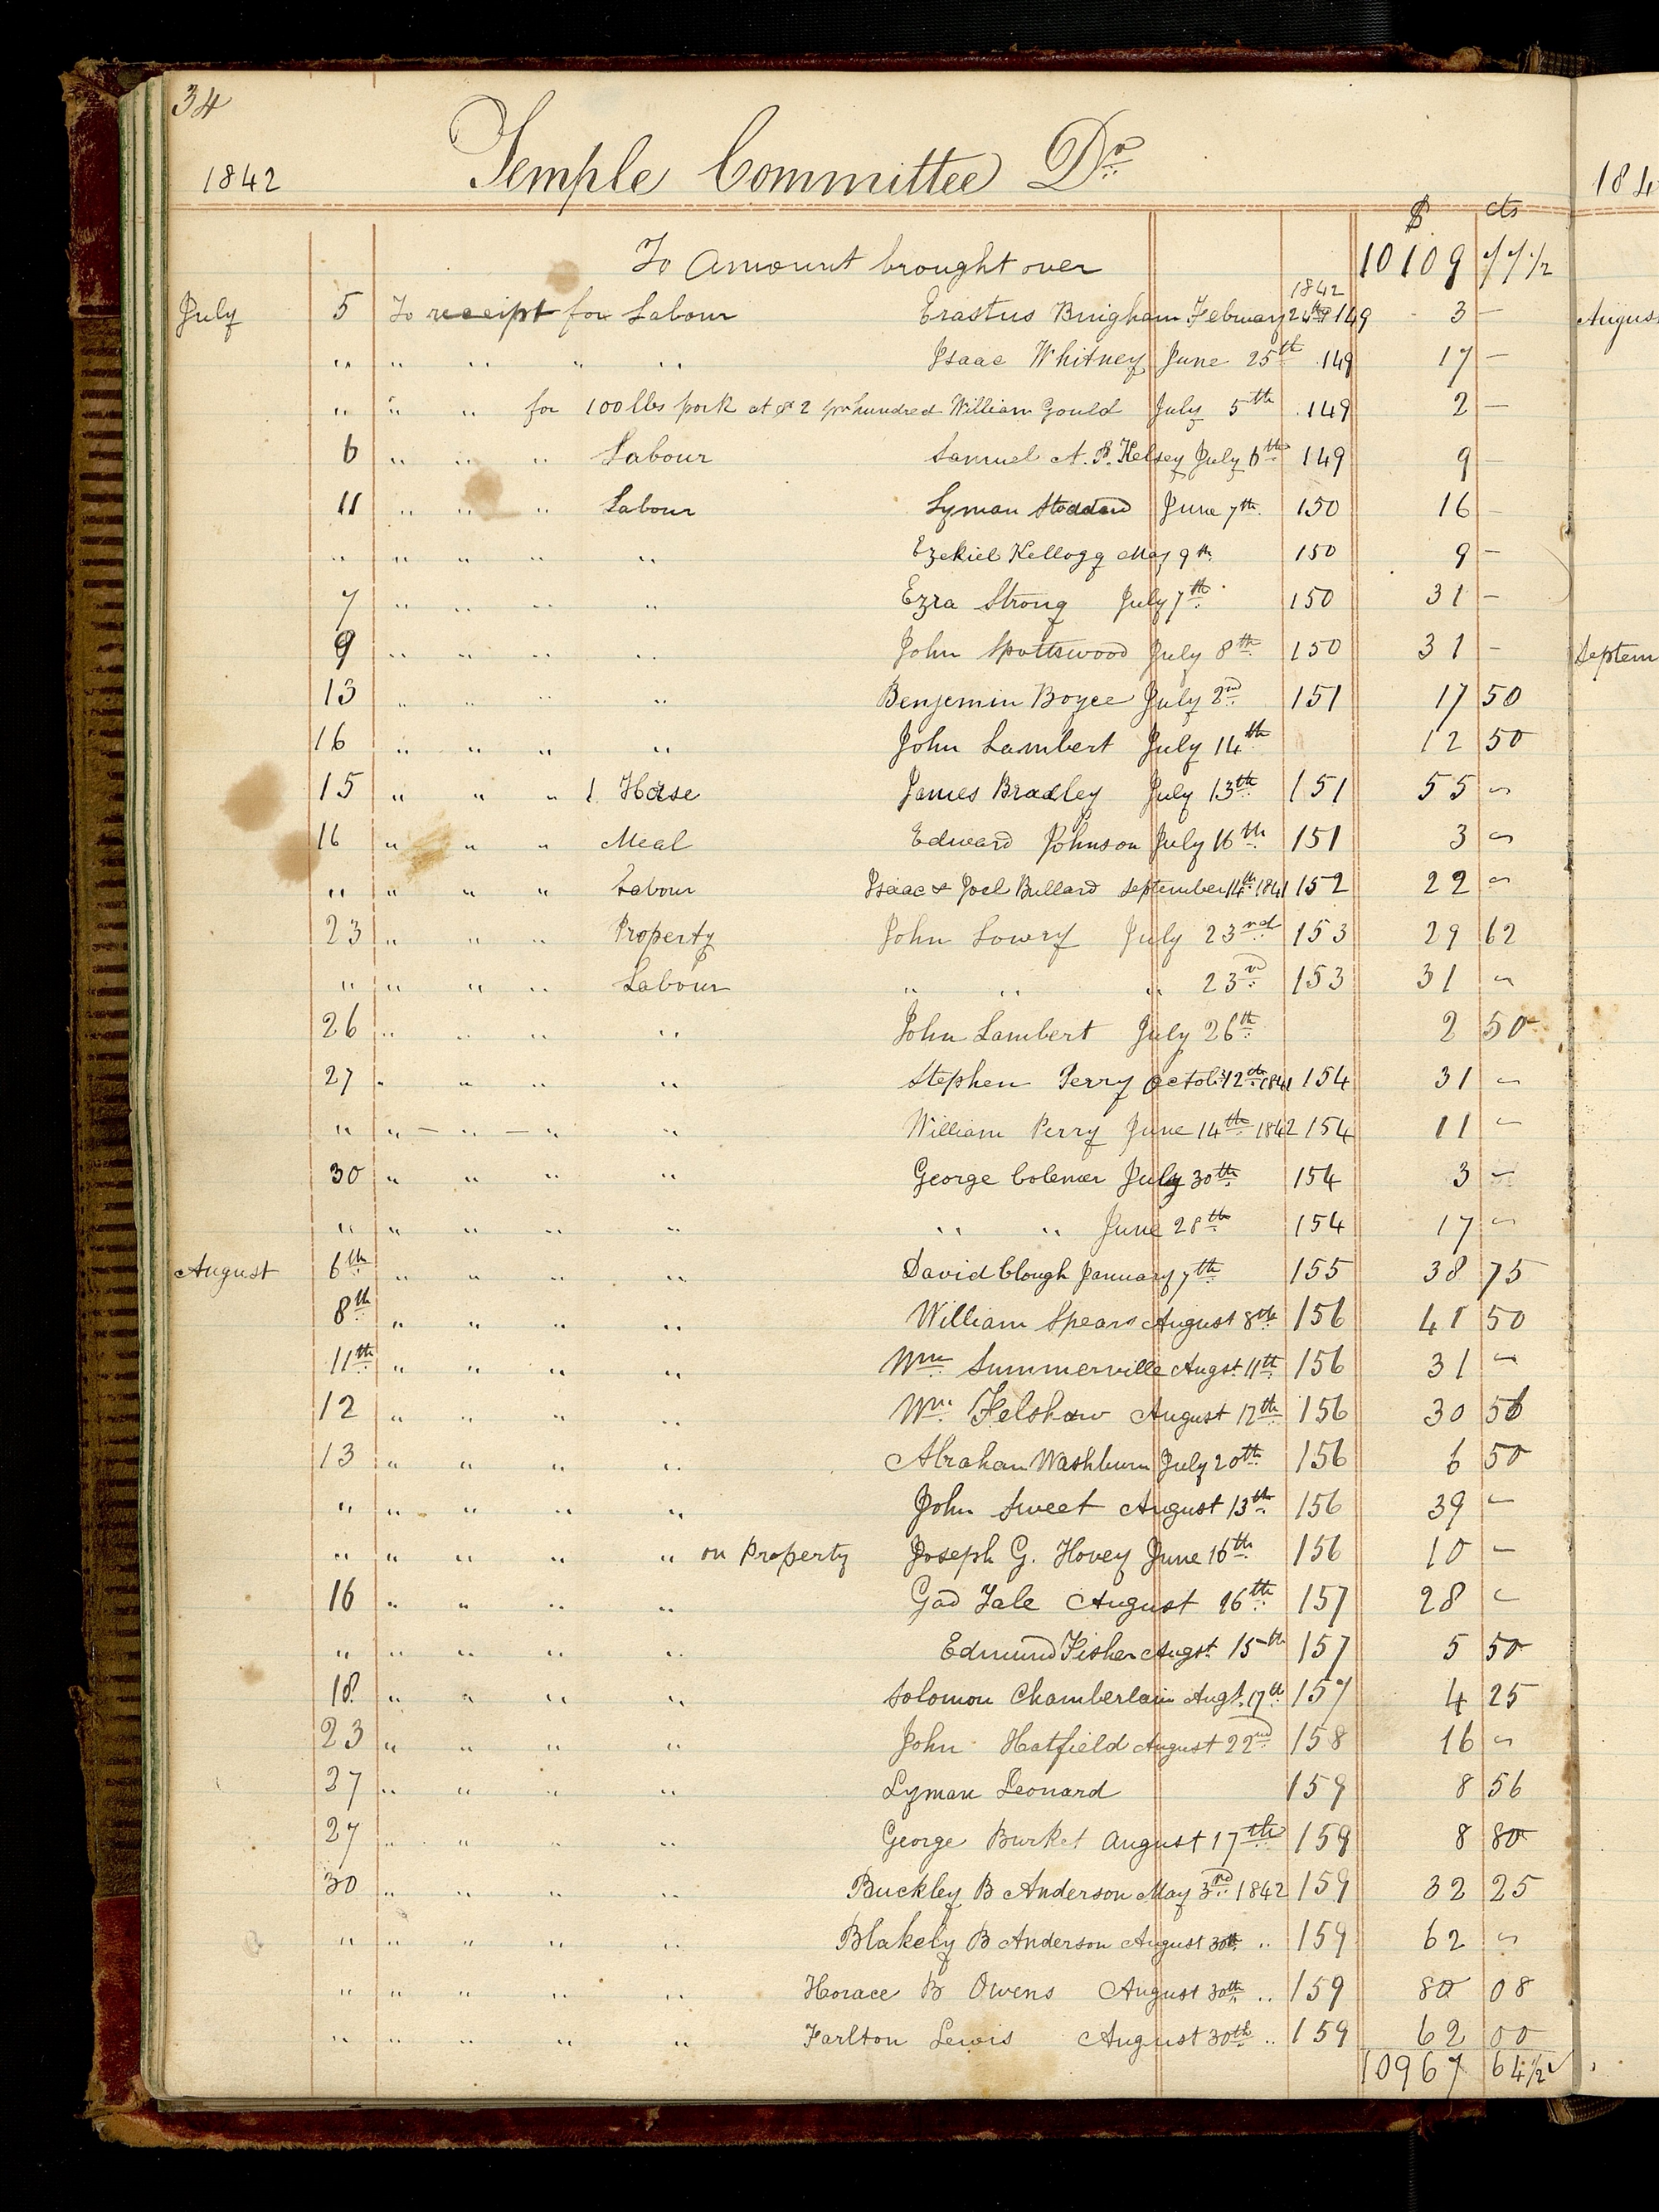 34
1842 Temple Committee Dr
$ cts
To Amount brought over 10109 77 1/2
1842
July 5 To receipt for Labour Erastus Bingham February 24th 149 3 —
" " " " " Isaac Whitney June 25th 149 17 —
" " " for 100 lbs pork at $2 pr hundred William Gould July 5th 149 2 —
6 " " " Labour Samuel A. P. Kelsey July 6th 149 9 —
11 " " " Labour Lyman Stoddard June 7th 150 16 —
" " " " " Ezekiel Kellogg May 9th 150 9 —
7 " " " " Ezra Strong July 7th 150 31 —
9 " " " " John Spottswood July 8th 150 31 —
13 " " " " Benjemin Boyce July 2nd 151 17 50
16 " " " " John Lambert July 14th 12 50
15 " " " 1 Horse James Bradley July 13th 151 55 —
16 " " " Meal Edward Johnson July 16th 151 3 —
" " " " Labour Isaac & Joel Bullard September 14th 1841 152 22 —
23 " " " Property John Lowry July 23rd 153 29 62
" " " " Labour " " " 23rd 153 31 —
26 " " " " John Lambert July 26th 2 50
27 " " " " Stephen Perry Octobr 12th 1841 154 31 —
" " — " — " " William Perry June 14th 1842 154 11 —
30 " " " " George Colemer July 30th 154 3 —
" " " " " " " June 28th 154 17 —
August 6th " " " " David Clough January 7th 155 38 75
8th " " " " William Spears August 8th 156 41 50
11th " " " " Wm Summerville Augst 11th 156 31 —
12 " " " " Wm Felshaw August 12th 156 30 56
13 " " " " Abraham Washburn July 20th 156 6 50
" " " " " John Sweet August 13th 156 39 —
" " " " " on Property Joseph G. Hovey June 16th 156 10 —
16 " " " " Gad Yale August 16th 157 28 —
" " " " " Edmund Fisher Augst 15th 157 5 50
18 " " " " Solomon Chamberlain Augt. 17th 157 4 25
23 " " " " John Hatfield August 22nd 158 16 —
27 " " " " Lyman Leonard 159 8 56
27 " " " " George Burket August 17th 159 8 80
30 " " " " Buckley B Anderson May 3rd 1842 159 32 25
" " " " " Blakely B Anderson August 30th " 159 62 —
" " " " " Horace B Owens August 30th " 159 80 08
" " " " " Tarlton Lewis August 30th " 159 62 00
10967 64 1/2 ✓
184
August
Septem